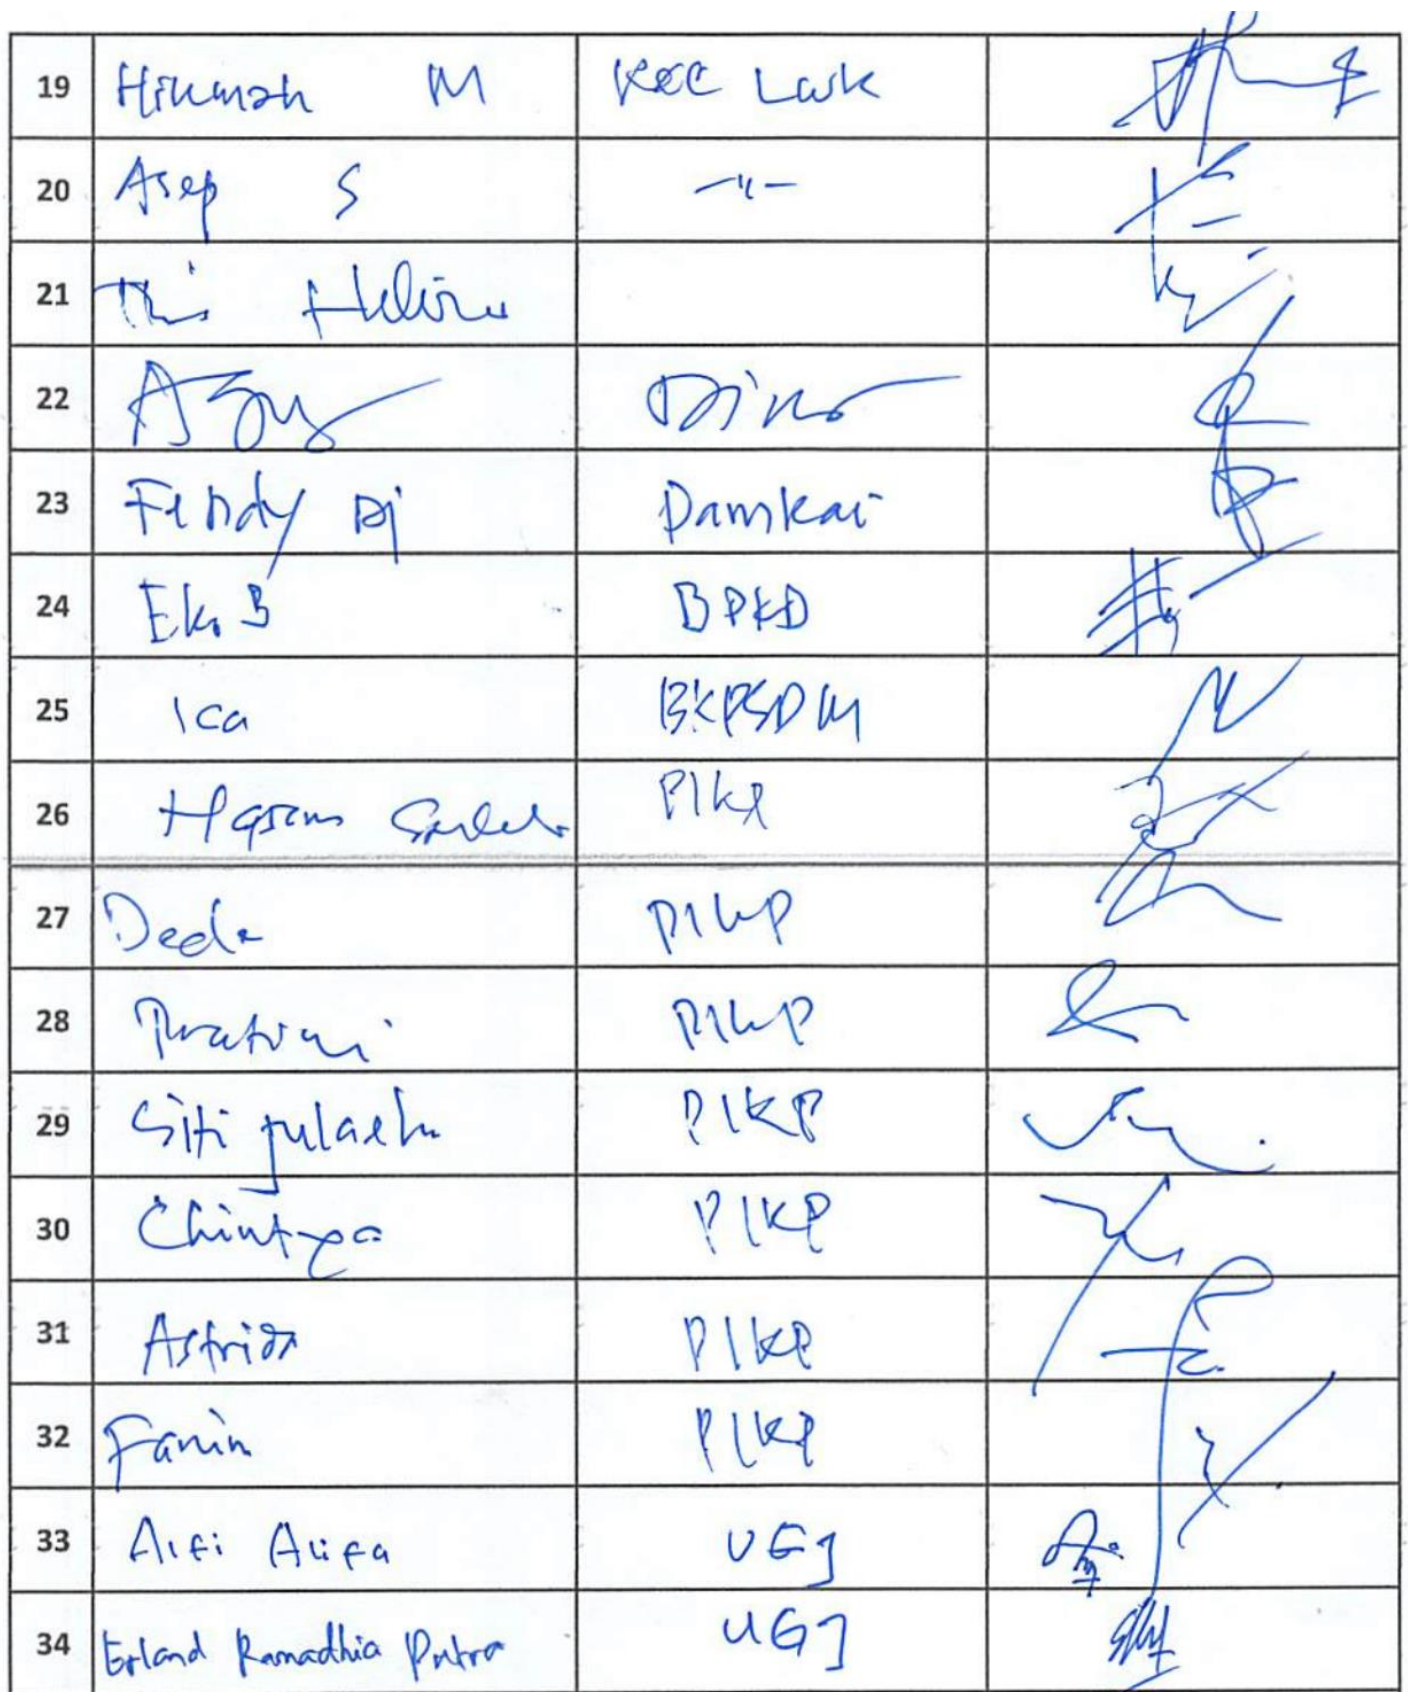 19 Hikmah M Kec Lwk
20 Asep S -"-
21
22
23 Fendy Dj Damkar
24 Eko B BPKD
25 Ica BKPSDM
26 PIKP
27 Dede PIKP
28 Pratiwi PIKP
29 Siti julaeha PIKP
30 Chintya PIKP
31 Astrida PIKP
32 Fanin PIKP
33 Alfi Alifa UGJ
34 Erland Ramadhia Putra UGJ